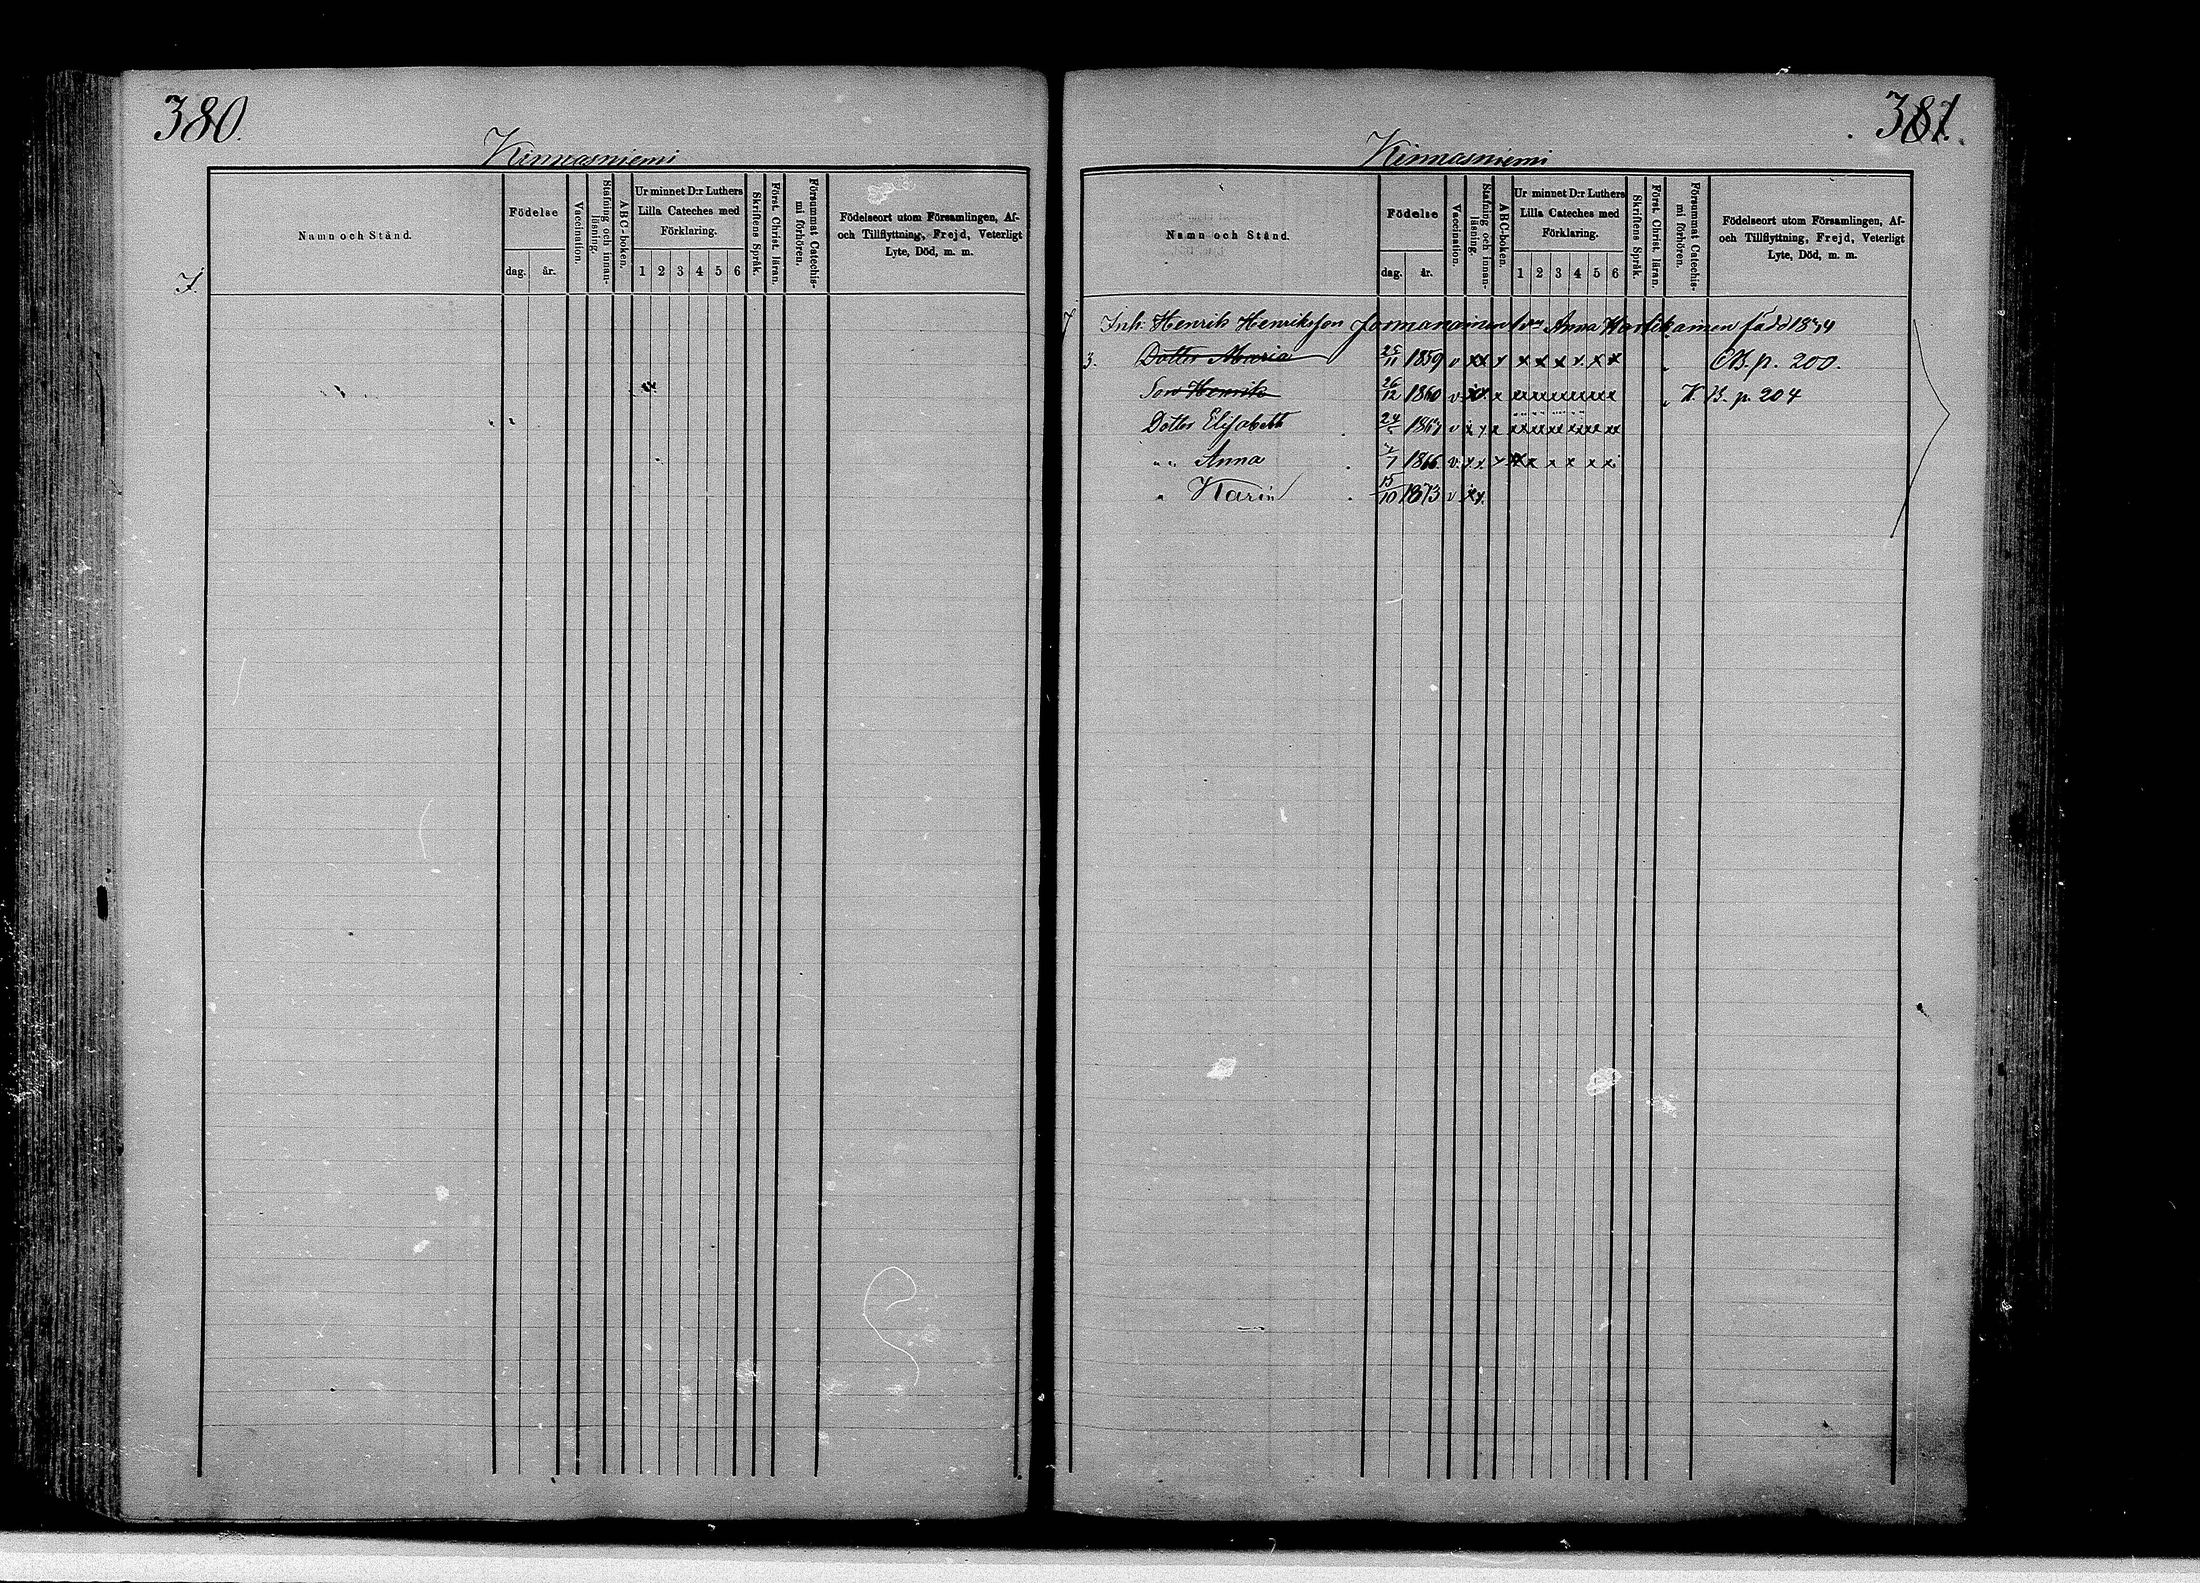 380.
Kinnasniemi
Namn och Stånd.
Födelse
dag.
år.
Vaccination.
Stafning och innan-
läsning.
ABC-boken.
Ur minnet D:r Luthers
Lilla Cateches med
Förklaring.
1 2 3 4 5 6
Skriftens Språk.
Först. Christ. läran.
Försummat Catechis-
mi förhören.
Födelseort utom Församlingen, Af-
och Tillflyttning, Frejd, Veterligt
Lyte, Död, m. m.
7.
381.
Kinnasniemi
Namn och Stånd.
Födelse
dag.
år.
Vaccination.
Stafning och innan-
läsning.
ABC-boken.
Ur minnet D:r Luthers
Lilla Cateches med
Förklaring.
1 2 3 4 5 6
Skriftens Språk.
Först. Christ. läran.
Försummat Catechis-
mi förhören.
Födelseort utom Församlingen, Af-
och Tillflyttning, Frejd, Veterligt
Lyte, Död, m. m.
7. Inh. Henrik Henriksson Jormanainen Anna född
3. Dotter Maria 25/11 1859 v xx x x x x x x x p. 200.
Son Henrik 26/12 1860 v xx x xx xx xx xx xx xx K. B. p. 204
Dotter Elisabeth v x x x xx xx xx xx xx xx
" " Anna 1866 v. x x x x x x x x x
" Karin 15/10 1873 v xx.